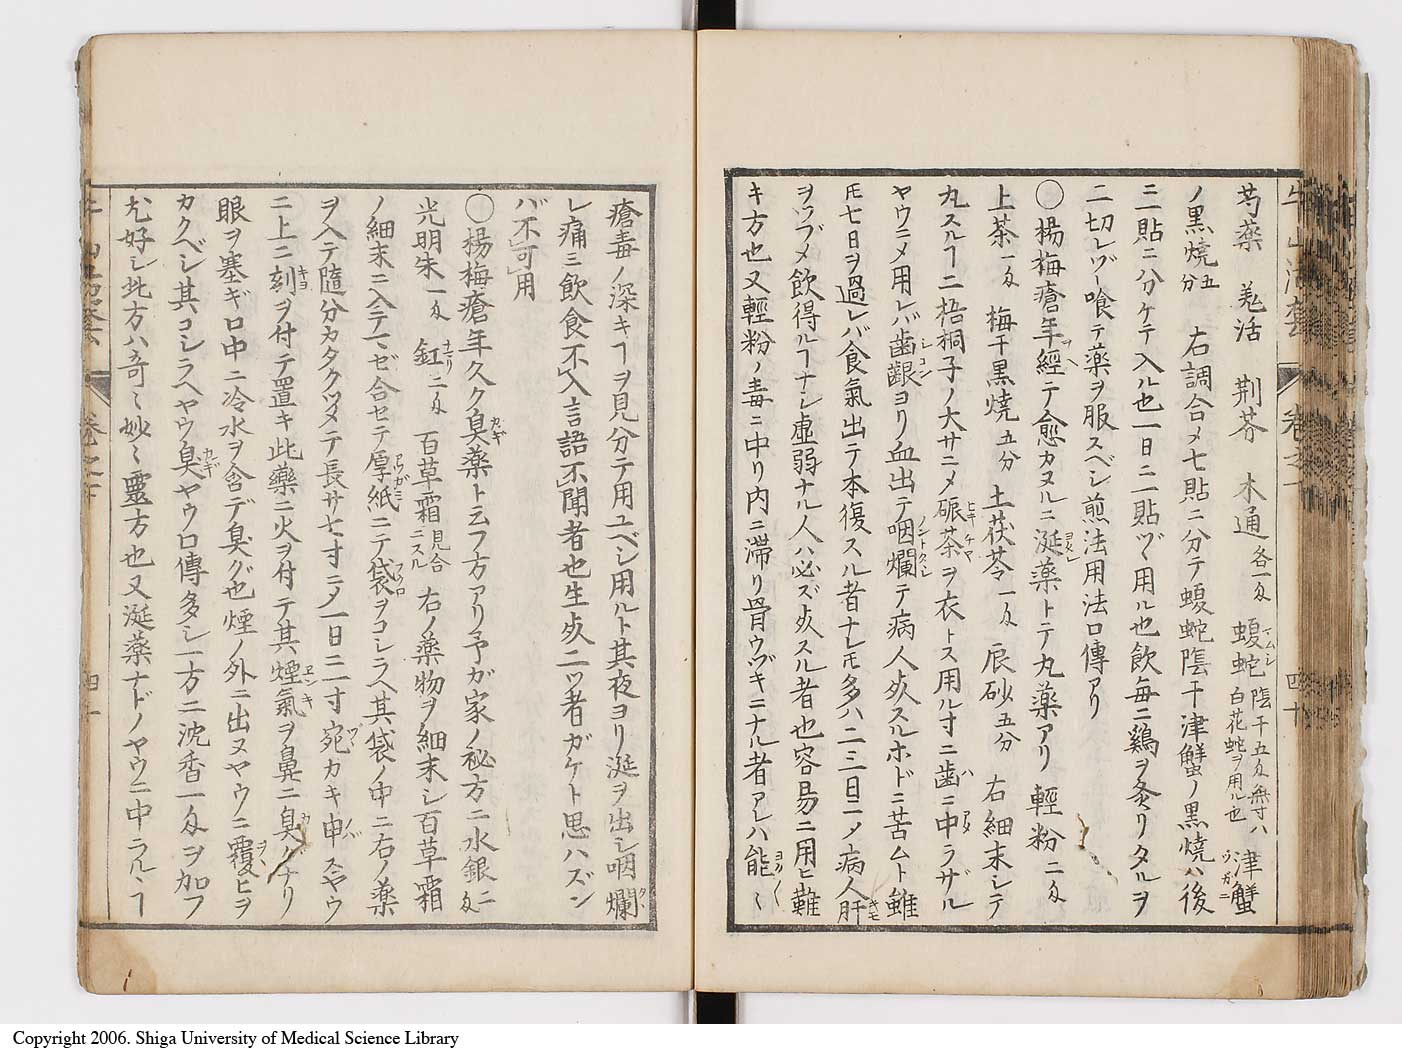 芍薬 羗活 荆芥 木通各一匁 蝮蛇マムシ陰干五匁無寸ハ白花蛇ヲ用ル也 津蟹ツガニ
ノ黒焼五分 右調合〆七貼ニ分テ蝮蛇陰干津蟹ノ黒焼ハ後
ニ貼ニ分ケテ入ル也一日ニ二貼ヅヽ用ル也飲毎ニ鷄ヲ炙リタルヲ
二切レヅヽ喰テ薬ヲ服スベシ煎法用法口傳アリ
○楊梅瘡年經テ愈カヌルニ涎薬トテ丸薬アリ 輕粉二匁
上茶一匁 梅干黒焼五分 土茯苓一匁 辰砂五分 右細末シテ
丸スルヿ二梧桐子ノ大サニ〆碾茶ヲ衣トス用ル寸ニ歯ニ中ラザル
ヤウニ〆用レバ歯齦ヨリ血出テ咽爛テ病人死スルホドニ苦ムト雖
モ七日ヲ過レバ食氣出テ本復スル者ナレ𪜈多ハ二三日ニノ病人肝
ヲツブ〆飲得ルヿナシ虚弱ナル人ハ必ズ死スル者也容易ニ用ヒ難
キ方也又輕粉ノ毒ニ中リ内ニ滞リ骨ウヅキニナル者アレハ能〻
瘡毒ノ深キヿヲ見分テ用ユベシ用ルト其夜ヨリ涎ヲ出シ咽爛
レ痛ミ飲食不入言語不聞者也生死二ツ者ガケト思ハズン
バ不可用
○楊梅瘡年久ク臭薬ト云フ方アリ予ガ家ノ秘方ニ水銀二匁
光明朱一匁 釭二匁 百草霜見合ニスル 右ノ薬物ヲ細末シ百草霜
ノ細末ニ入テマゼ合セテ厚紙ニテ袋ヲコシラヘ其袋ノ中ニ右ノ薬
ヲ入テ隨分カタクツメテ長サ七寸ニ〆一日ニ一寸宛カキ申スヤウ
ニ上ニ刻ヲ付テ置キ此藥ニ火ヲ付テ其煙氣ヲ鼻ニ臭グナリ
眼ヲ塞ギ口中ニ冷水ヲ含デ臭グ也煙ノ外ニ出ヌヤウニ覆ヒヲ
カクベシ其コシラヘヤウ臭ヤウ口傳多シ一方ニ沈香一匁ヲ加フ
尤好シ此方ハ奇〻妙〻靈方也又涎薬ナドノヤウニ中ラルヿ
Copyright 2006. Shiga University of Medical Science Library